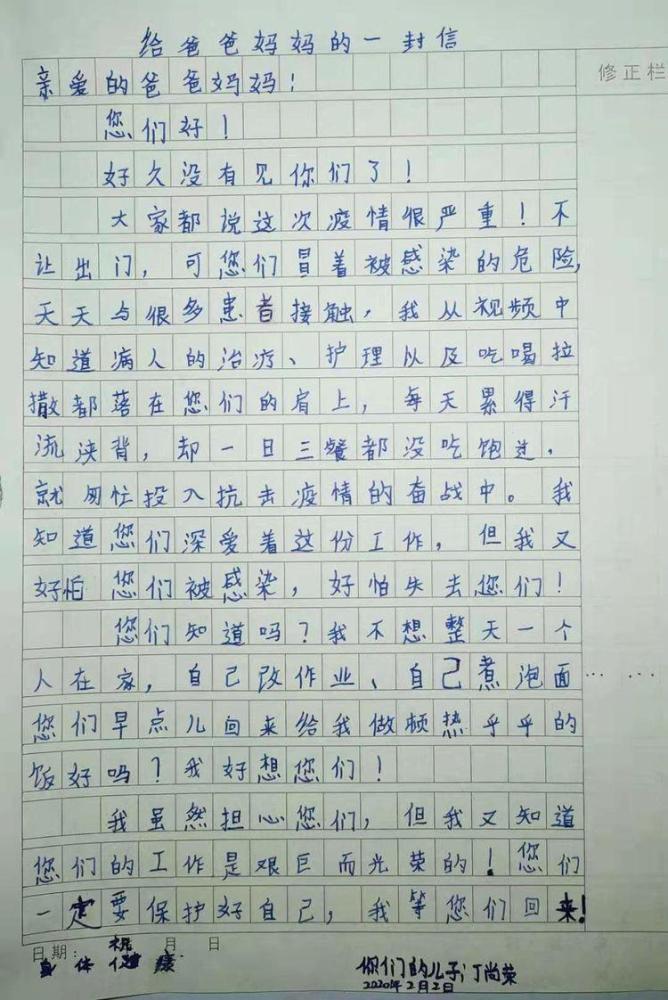 给爸爸妈妈的一封信
修正栏
亲爱的爸爸妈妈！
您们好！
好久没有见你们了！
大家都说这次疫情很严重！不
让出门，可您们冒着被感染的危险，
天天与很多患者接触，我从视频中
知道病人的治疗、护理以及吃喝拉
撒都落在您们的肩上，每天累得汗
流浃背，却一日三餐都没吃饱过．
就匆忙投入抗击疫情的奋战中。我
知道您们深爱着这份工作，但我又
好怕您们被感染，好怕失去您们！
您们知道吗？我不想整天一个
人在家，自己改作业、自己煮泡面
您们早点儿回来给我做顿热乎乎的
饭好吗？我好想您们！
我虽然担心您们，但我又知道
您们的工作是艰巨而光荣的！您们
一定要保护好自己，我等您们回来！
日期： 月 日
祝
身体健康
你们的儿子：丁尚荣
2020年2月2日